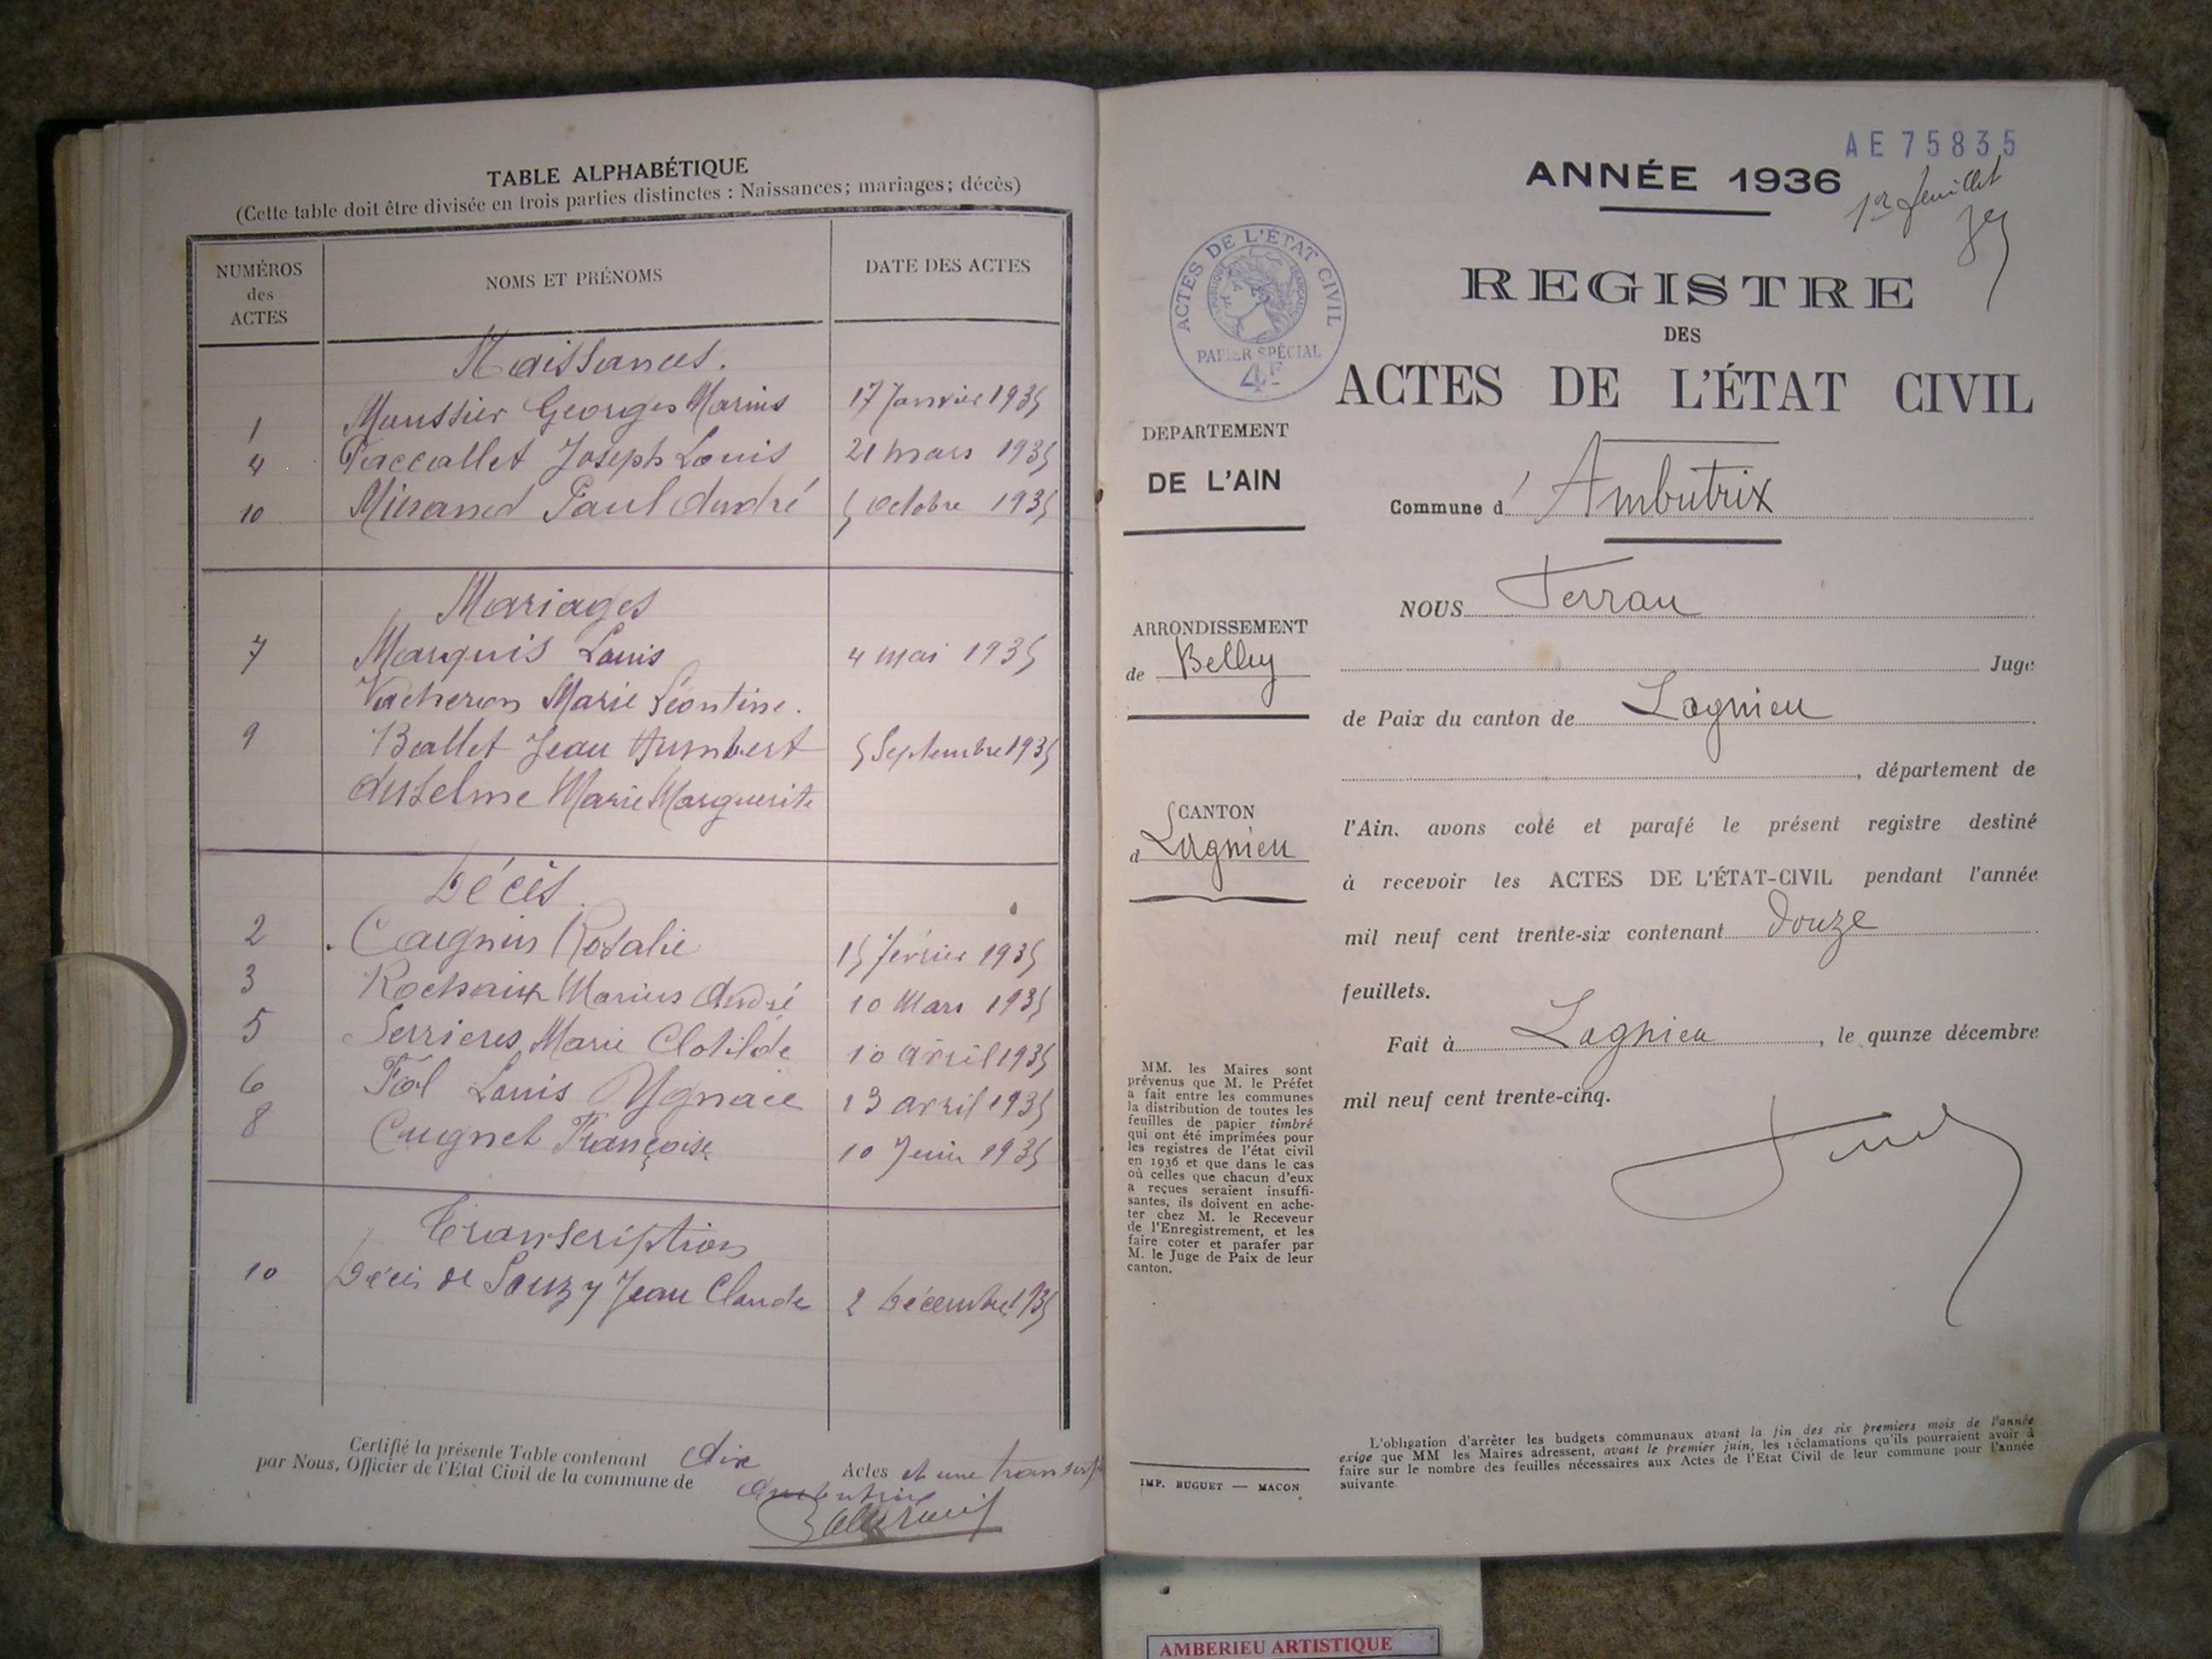 TABLE ALPHABÉTIQUE
(Cette table doit être divisée en trois parties distinctes : Naissances; mariages; décès)
NUMÉROS des ACTES
NOMS ET PRÉNOMS
DATE DES ACTES
Naissances.
1 Georges Marius 17 Janvier 1935
4 Joseph Louis 21 mars 1935
10 Paul André 5 Octobre 1935
Mariages
7 Marquis Louis 4 mai 1935
Vacheron Marie Léontine.
9 Ballet Jean Humbert 5 Septembre 1935
Anselme Marie Marguerite
Décès
2 Rosalie 15 Février 1935
3 Rochaix Marius André 10 Mars 1935
5 Serrieres Marie Clotilde 10 avril 1935
6 Fol Louis Ygnace 13 avril 1935
8 Cugnet Françoise 10 Juin 1935
Transcription
10 Décès de Souzy Jean Claude 2 Décembre 1935
Certifié la présente Table contenant dix Actes et une transcrip
par Nous, Officier de l'Etat Civil de la commune de Ambutrix
AE 75835
ANNÉE 1936
1er feuillet
REGISTRE
DES
ACTES DE L'ÉTAT CIVIL
ACTES DE L'ÉTAT CIVIL
PAPIER SPÉCIAL
4F
DEPARTEMENT
DE L'AIN
Commune d' Ambutrix
NOUS Ferran
ARRONDISSEMENT
de Belley
Juge
de Paix du canton de Lagnieu
, département de
CANTON
d Lagnieu
l'Ain, avons coté et parafé le présent registre destiné
à recevoir les ACTES DE L'ÉTAT-CIVIL pendant l'année
mil neuf cent trente-six contenant douze
feuillets.
Fait à Lagnieu, le quinze décembre
mil neuf cent trente-cinq.
MM. les Maires sont
prévenus que M. le Préfet
a fait entre les communes
la distribution de toutes les
feuilles de papier timbré
qui ont été imprimées pour
les registres de l'état civil
en 1936 et que dans le cas
où celles que chacun d'eux
a reçues seraient insuffi-
santes, ils doivent en ache-
ter chez M. le Receveur
de l'Enregistrement, et les
faire coter et parafer par
M. le Juge de Paix de leur
canton.
IMP. BUGUET — MACON
L'obligation d'arrêter les budgets communaux avant la fin des six premiers mois de l'année
exige que MM les Maires adressent, avant le premier juin, les réclamations qu'ils pourraient avoir à
faire sur le nombre des feuilles nécessaires aux Actes de l'Etat Civil de leur commune pour l'année
suivante.
AMBERIEU ARTISTIQUE